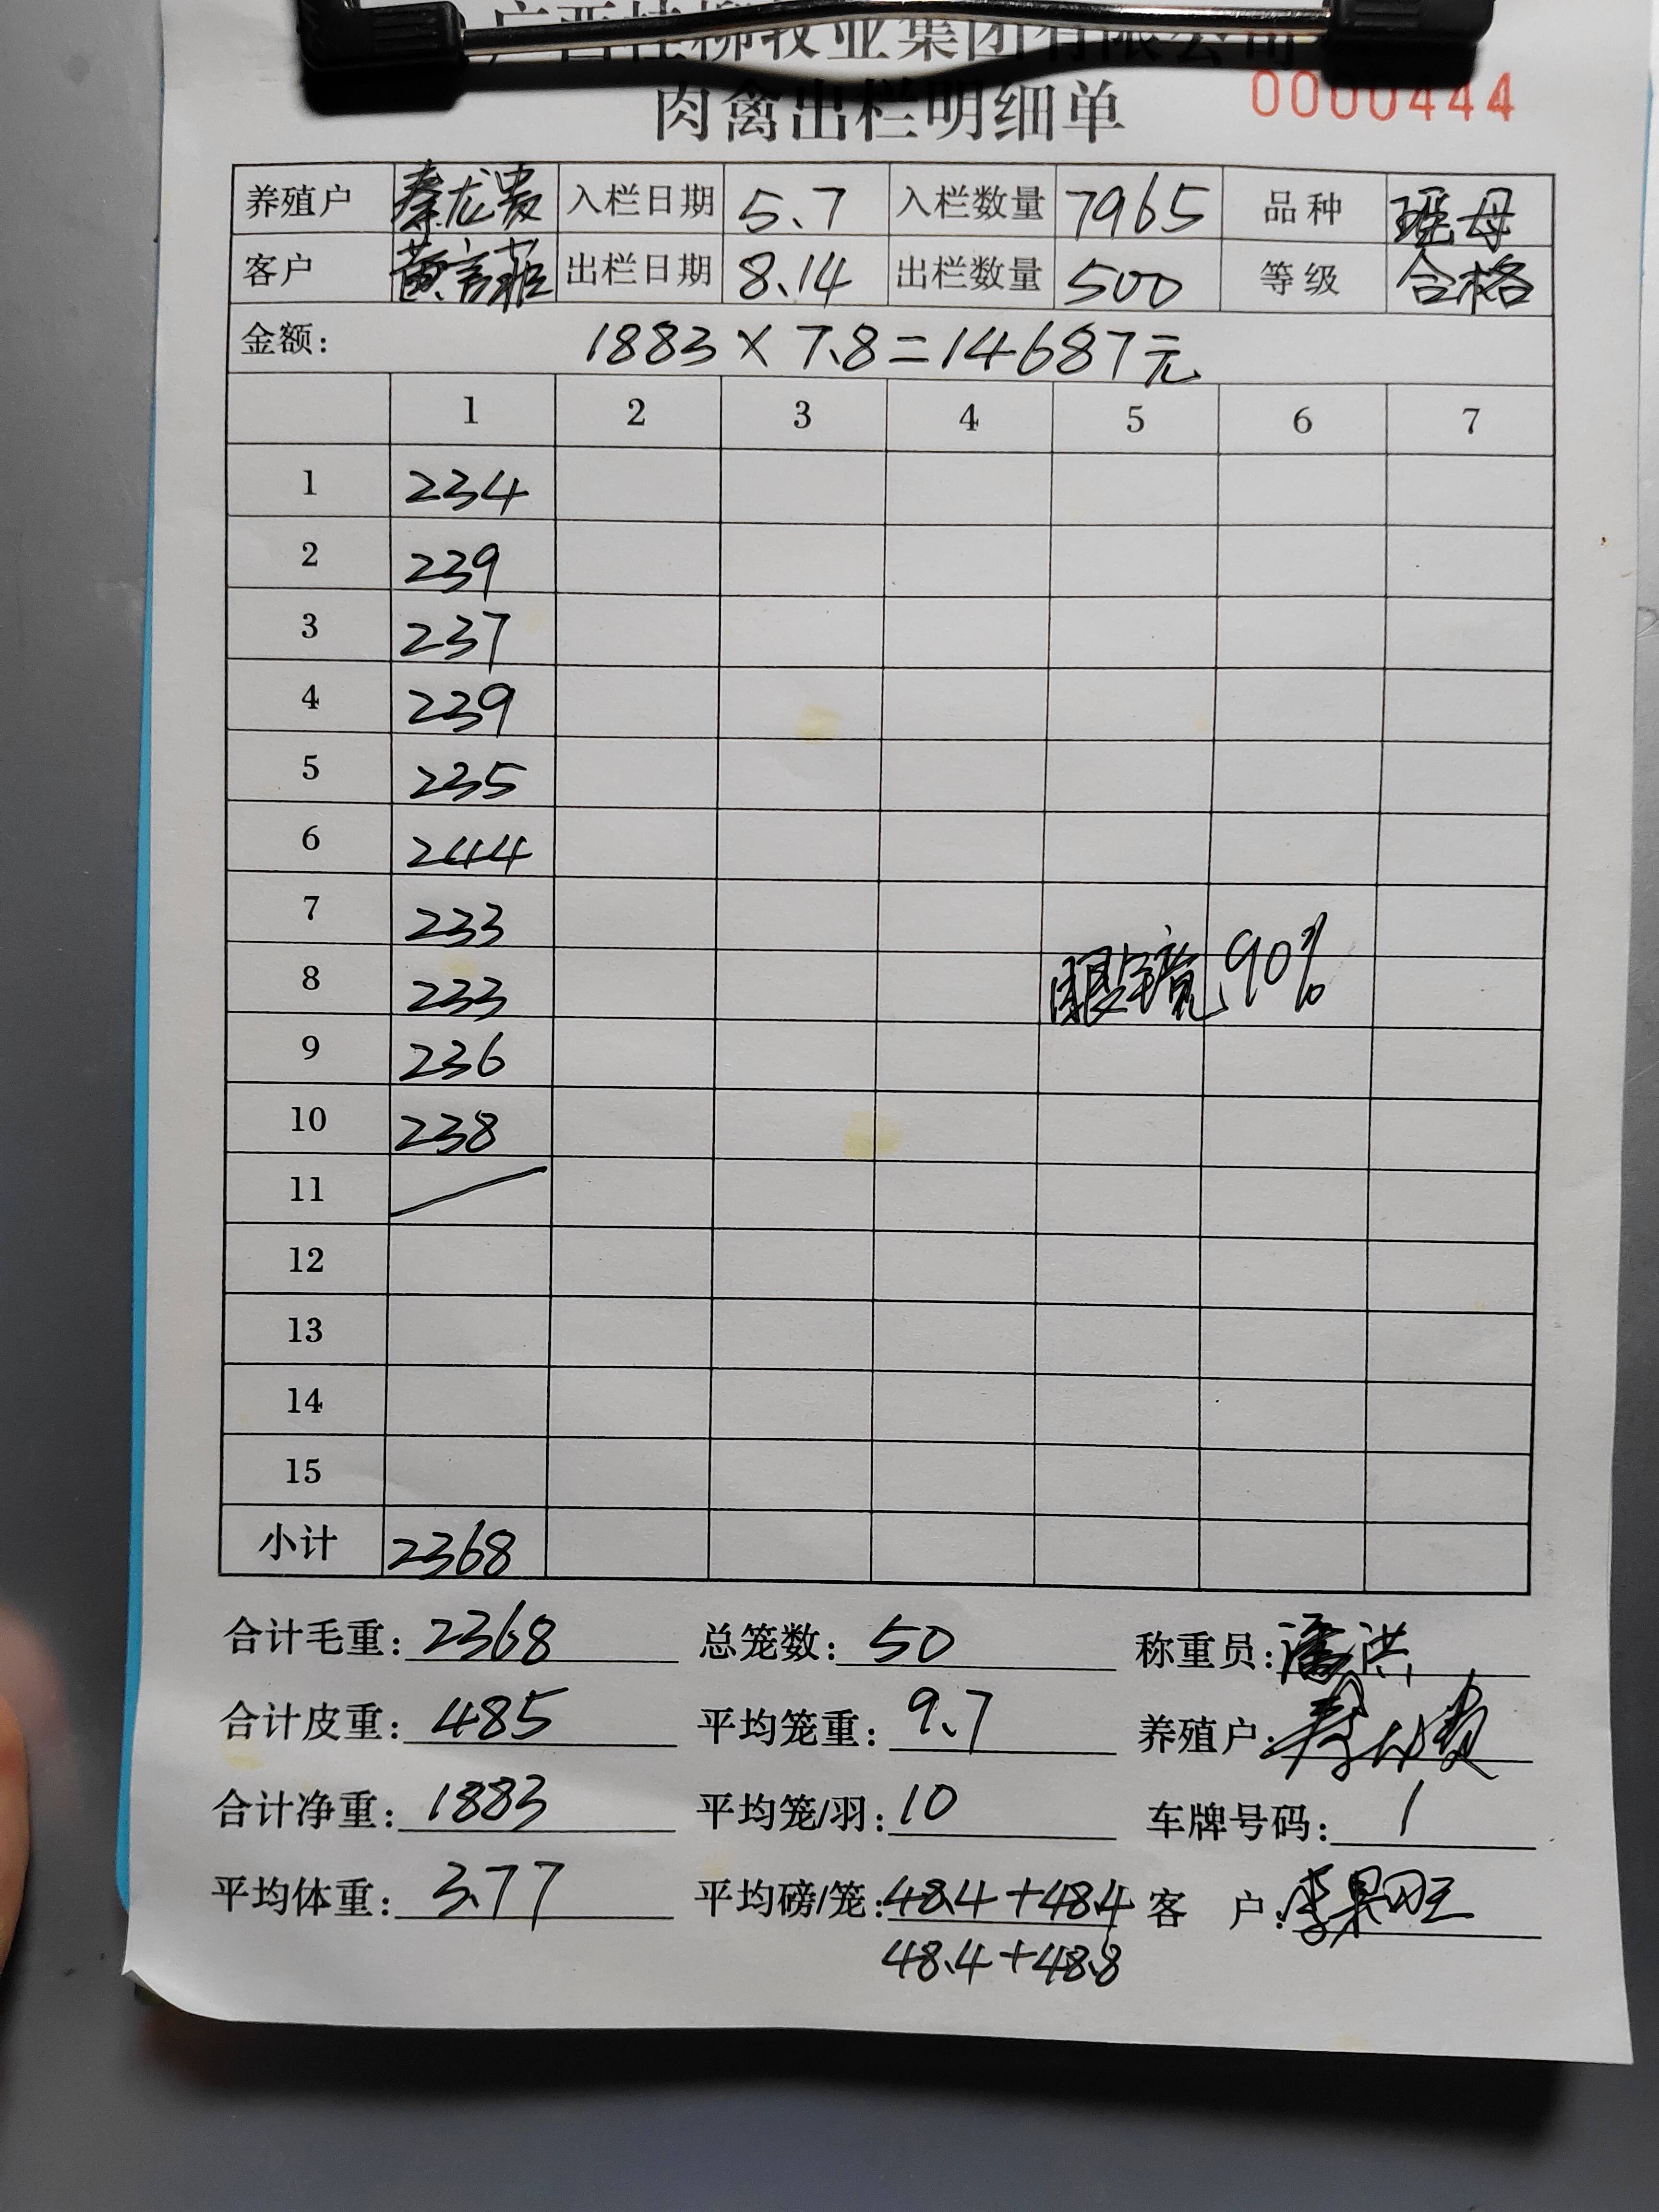 广西桂柳牧业集团有限公司
肉禽出栏明细单 0000444
养殖户 秦龙贵 入栏日期 5.7 入栏数量 7965 品种 瑶母
客户 黄言菲 出栏日期 8.14 出栏数量 500 等级 合格
金额: 1883×7.8=14687元
1 2 3 4 5 6 7
1 234
2 239
3 237
4 239
5 235
6 244
7 233
8 233 眼镜90%
9 236
10 238
11
12
13
14
15
小计 2368
合计毛重: 2368 总笼数: 50 称重员: 潘洪
合计皮重: 485 平均笼重: 9.7 养殖户:
合计净重: 1883 平均笼/羽: 10 车牌号码: 1
平均体重: 3.77 平均磅/笼: 48.4+48.4 客 户:
48.4+48.8